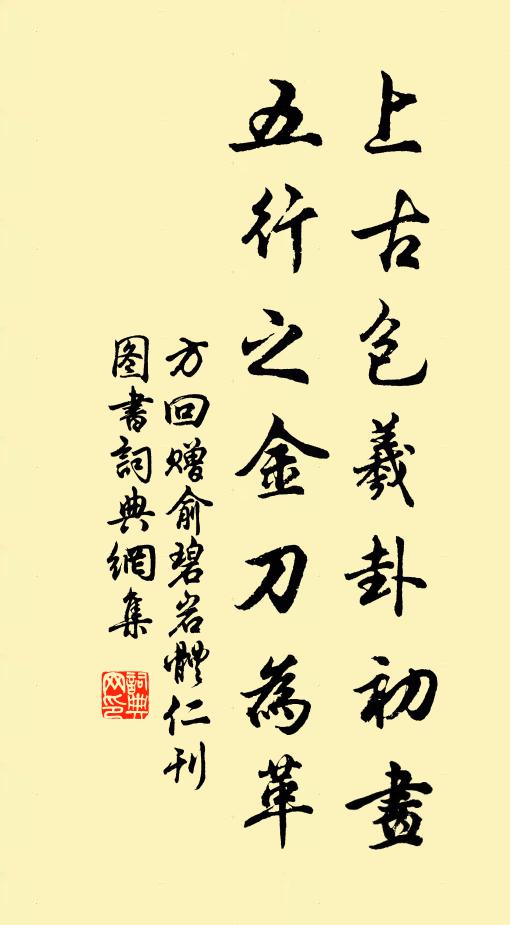 上古包羲卦初畫
五行之金刀為革
方回赠俞碧岩體仁刊
图書詞典網集
詞典网印